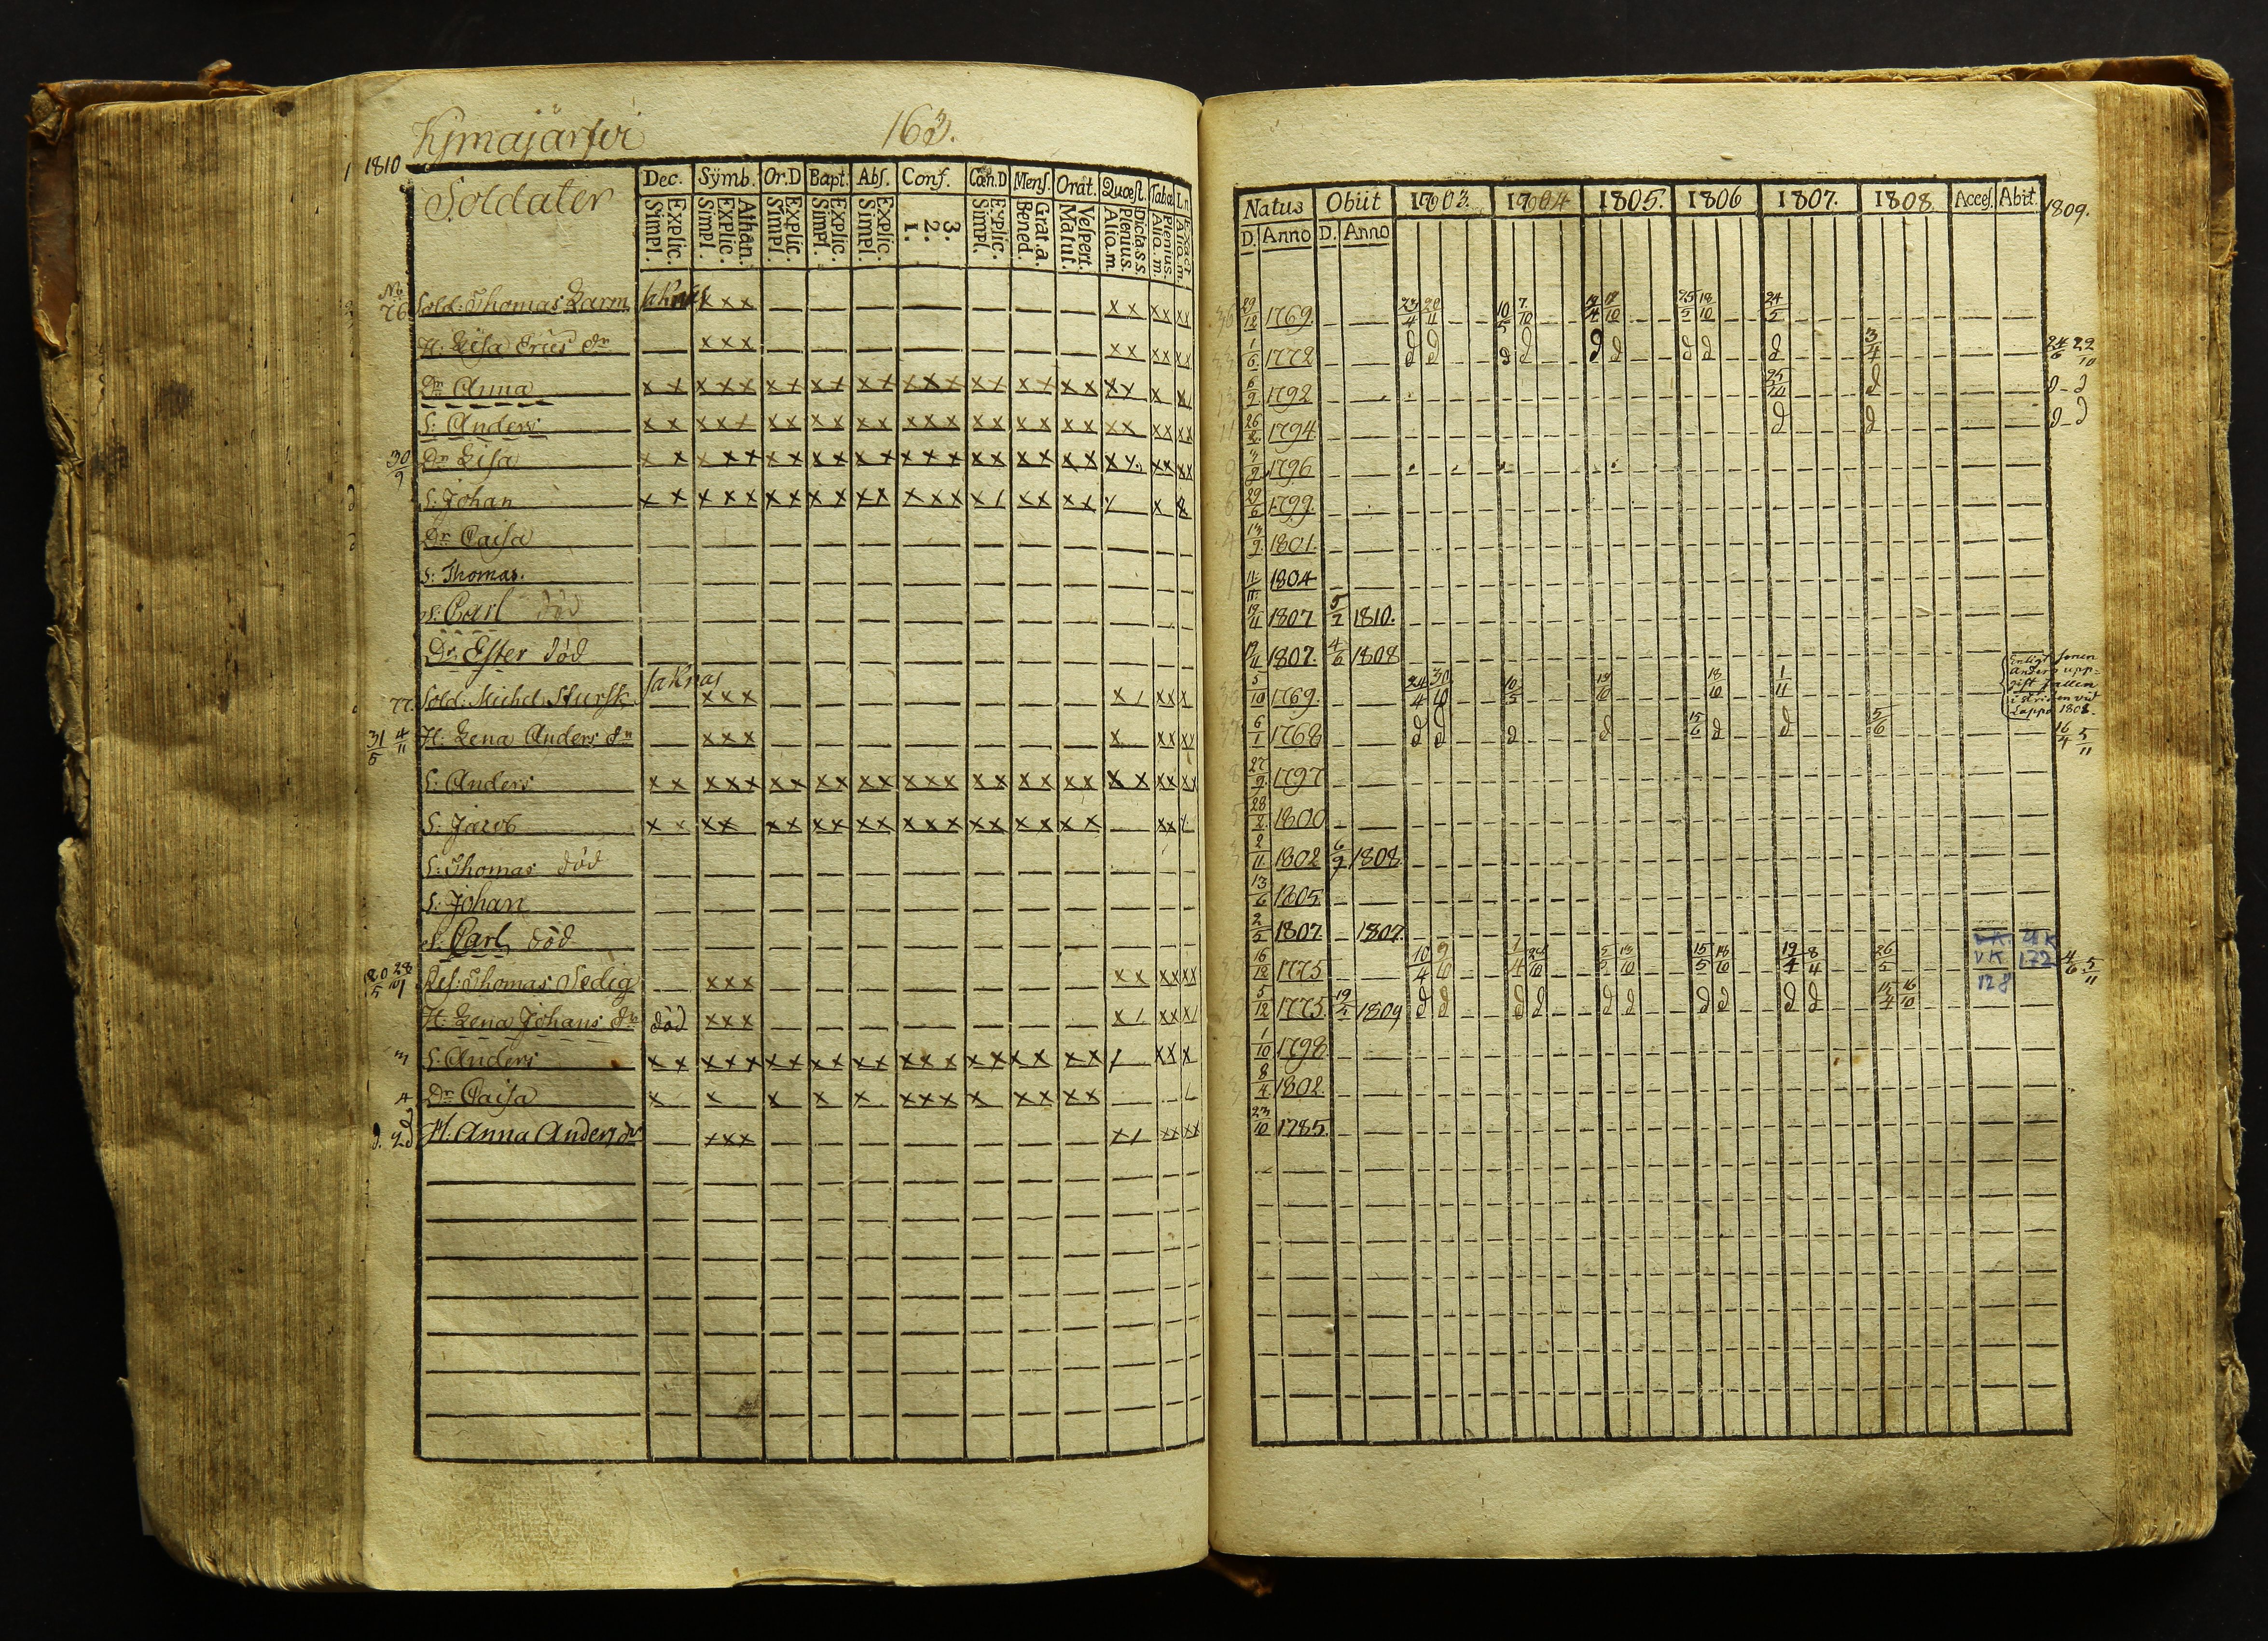 Kjmajärfvi 163.
1810
Soldater
Dec. Sÿmb. Or.D Bapt. Abſ. Conf. Cän.D Menſ. Orat. Quœſt. Tabœ Ln
Explic. Simpl. Athan. Explic. Simpl. Explic. Simpl. Explic. Simpl. Explic. Simpl. 3. 2. 1. Explic. Simpl. Grat.a. Bened. Veſpert. Matut. Dicta.s.s. Plenius. Alio.m. Plenius. Alio.m. Exact Alio.m.
No 76 Sold: Thomas Larm saknas xxx x x xx xx
H: Lisa Erics dr xxx xx xx xx
Dr Anna x x xxx xx xx xx xxx xx xx xx xx x x
S: Anders x x xxx xx xx xx xxx xx xx xx xx xx xx
30/9 Dr Lisa x x xxx xx xx xx xxx xx xx xx xx xx xx
S: Johan x x xxx xx xx xx xxx xx xx xx x x x
Dr Caisa
S: Thomas.
S: Carl död
Dr: Ester död
77 Sold: Michel Stursk saknas xxx x x xx x
31/5 4/11 H: Lena Anders dr xxx x xx xx
S: Anders x x xxx xx xx xx xxx xx xx xx x x xx xx
S: Jacob x x xx xx xx xx xxx xx xx xx xx x
S: Thomas död
S: Johan
S: Carl död
20/5 Res: Thomas Sedig xxx xx xx xx
H: Lena Johans dr död xxx x x xx x
3 S: Anders x x xxx xx xx xx xxx xx xx xx x xx x
4 Dr Caisa x x x x x xxx x xx xx
H: Anna Anders dr xxx xx xx xx
Natus Obiit 1803. 1804 1805. 1806 1807. 1808 Acceſ. Abit. 1809.
D. Anno D. Anno
29/12 1769. 23/4 20/11 10/5 7/10 25/5 18/10 24/5
1/6 1778 d d d d d d d d d 3/4 24/6 22/10
6/9 1792 25/10 d d d
26/2 1794 d d d d
3/9 1796
29/6 1799.
13/9 1801.
11/11 1804
19/11 1807 5/2 1810.
19/11 1807. 4/6 1808
5/10 1769. 24/4 30/10 10/5 19/10 18/10 1/11 Enligt sonen Anders upp= gift fallen i striden vid Lappo 1808.
6/1 1768 d d d d 15/6 d d 5/6 16/4 5/11
27/9 1797
28/8 1800
2/11 1802 6/9 1808.
13/6 1805.
2/5 1807 1807.
16/12 1775 10/4 9/10 1/4 28/10 5/5 13/10 15/5 18/10 19/4 8/4 26/5 VK VK 128 UK 172 4/6 5/11
5/12 1775. 19/5 1809 d d d d d d d d d d 15/4 16/10
1/10 1798
8/4 1802.
23/10 1785.